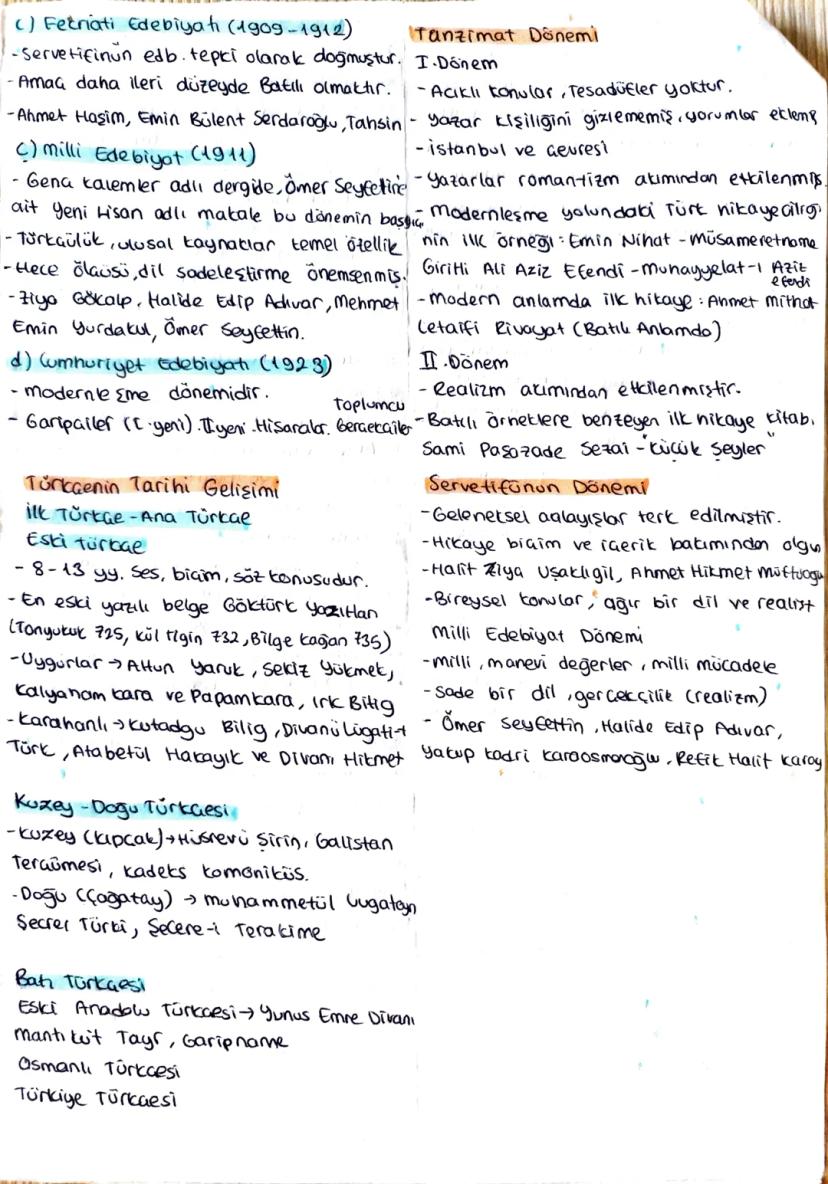 c) Fecriati Edebiyatı (1909-1912)
- Servetifünun edb. tepki olarak doğmuştur.
- Amaç daha ileri düzeyde Batılı olmaktır.
- Ahmet Haşim, Emin Bülent Serdaroğlu, Tahsin
Ç) Milli Edebiyat (1911)
- Genç kalemler adlı dergide, Ömer Seyfettine
ait yeni lisan adlı makale bu dönemin başgıcı
- Türkçülük, ulusal kaynaklar temel özellik
- Hece ölçüsü, dil sadeleştirme önemsenmiş.
- Ziya Gökalp, Halide Edip Adıvar, Mehmet
Emin Yurdakul, Ömer Seyfettin.
d) Cumhuriyet Edebiyatı (1923)
- modernleşme dönemidir.
- Garipçiler (I. yeni). II yeni. Hisarcılar. Toplumcu Gerçekçiler
Türkçenin Tarihi Gelişimi
İlk Türkçe - Ana Türkçe
Eski türkçe
- 8-13 yy. Ses, biçim, söz konusudur.
- En eski yazılı belge Göktürk Yazıtları
(Tonyukuk 725, Kül tigin 732, Bilge kağan 735)
- Uygurlar → Altun Yaruk, Sekiz Yükmek,
Kalyanam kara ve Papamkara, Irk Bitig
- Karahanlı → Kutadgu Bilig, Divanü Lügati-t
Türk, Atabetül Hakayık ve Divanı Hikmet
Kuzey - Doğu Türkçesi
- Kuzey (Kıpçak) → Hüsrevü Şirin, Galistan
Tercümesi, kadeks komoniküs.
- Doğu (Çağatay) → muhammetül lugateyn
Secrei Türki, Şecere-i Terakime
Batı Türkçesi
Eski Anadolu Türkçesi → Yunus Emre Divanı
Mantı kut Tayr, Garipname
Osmanlı Türkçesi
Türkiye Türkçesi
Tanzimat Dönemi
I. Dönem
- Acıklı konular, Tesadüfler yoktur.
- Yazar kişiliğini gizlememiş, yorumlar eklemş
- İstanbul ve çevresi
- Yazarlar romantizm akımından etkilenmiş.
- Modernleşme yolundaki Türk hikayeciliği
nin ilk örneği: Emin Nihat - Müsameretname
Giritli Ali Aziz Efendi - Muhayyelat-ı Aziz efendi
- Modern anlamda ilk hikaye: Ahmet Mithat
Letaifi Rivayat (Batılı Anlamda)
II. Dönem
- Realizm akımından etkilenmiştir.
- Batılı örneklere benzeyen ilk hikaye kitabı.
Sami Paşazade Sezai - "küçük Şeyler"
Servetifünun Dönemi
- Geleneksel anlayışlar terk edilmiştir.
- Hikaye biçim ve içerik bakımından olgun
- Halit Ziya Uşaklıgil, Ahmet Hikmet Müftüoğlu
- Bireysel konular, ağır bir dil ve realist
Milli Edebiyat Dönemi
- milli, manevi değerler, milli mücadele
- Sade bir dil, gerçekçilik (realizm)
- Ömer Seyfettin, Halide Edip Adıvar,
Yakup Kadri Karaosmanoğlu, Refik Halit Karay